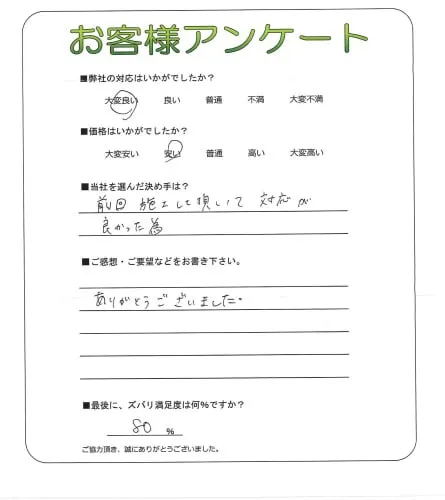 お客様アンケート
■弊社の対応はいかがでしたか?
大変良い 良い 普通 不満 大変不満
■価格はいかがでしたか?
大変安い 安い 普通 高い 大変高い
■当社を選んだ決め手は?
前回 施工して頂いて 対応が
良かった為
■ご感想・ご要望などをお書き下さい。
ありがとうございました。
■最後に、ズバリ満足度は何%ですか?
80 %
ご協力頂き、誠にありがとうございました。